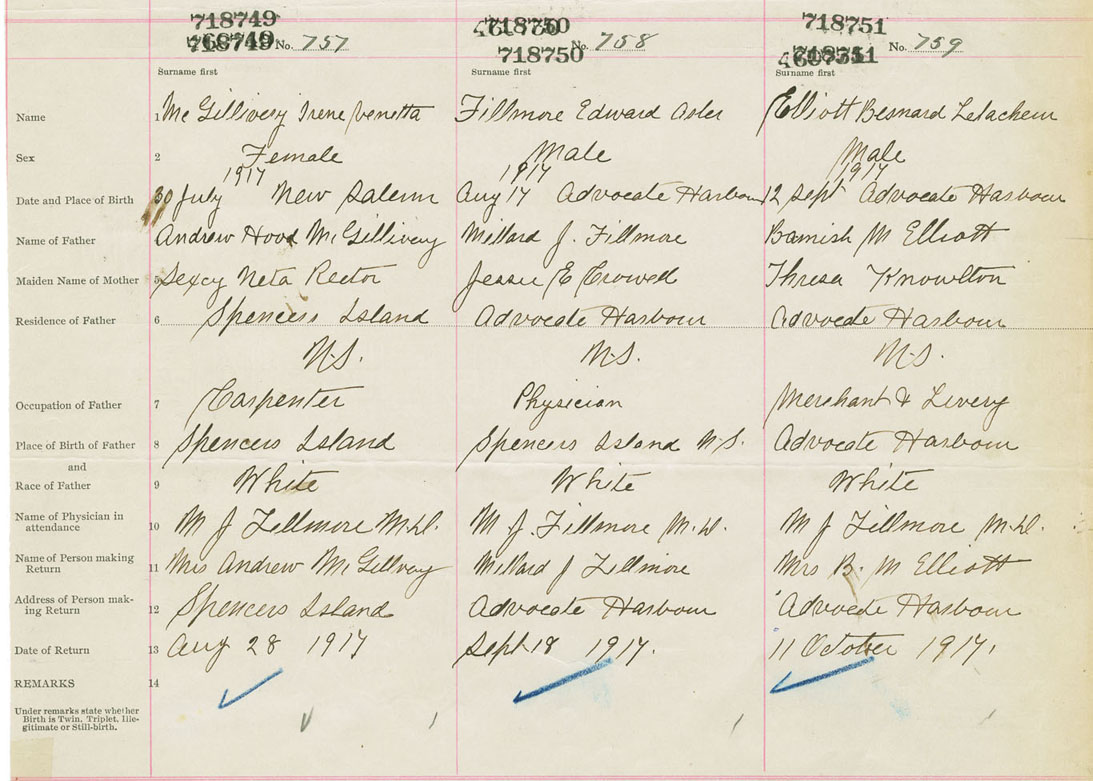 718749 718750 718751
718749 No. 757 718750 No. 758 No. 759
Surname first Surname first Surname first
Name 1 McGillivery Irene Venetta Fillmore Edward Aster Elliott Bernard
Sex 2 Female Male Male
1917 1917 1917
Date and Place of Birth 30 July New Salem Aug 17 Advocate Harbour 12 Sept Advocate Harbour
Name of Father Andrew Hood McGillivery Millard J. Fillmore M Elliott
Maiden Name of Mother 5 Neta Rector Jessie E Crowell Thresa Knowlton
Residence of Father 6 Spencers Island Advocate Harbour Advocate Harbour
N.S. N.S. N.S.
Occupation of Father 7 Carpenter Physician Merchant & Livery
Place of Birth of Father 8 Spencers Island Spencers Island N.S. Advocate Harbour
and
Race of Father 9 White White White
Name of Physician in
attendance 10 M J Fillmore M.D. M. J. Fillmore M.D. M J Fillmore M.D.
Name of Person making
Return 11 Mrs Andrew McGillvery Millard J Fillmore Mrs B. M Elliott
Address of Person mak-
ing Return 12 Spencers Island Advocate Harbour Advocate Harbour
Date of Return 13 Aug 28 1917 Sept 18 1917. 11 October 1917.
REMARKS 14
Under remarks state whether
Birth is Twin, Triplet, Ille-
gitimate or Still-birth.